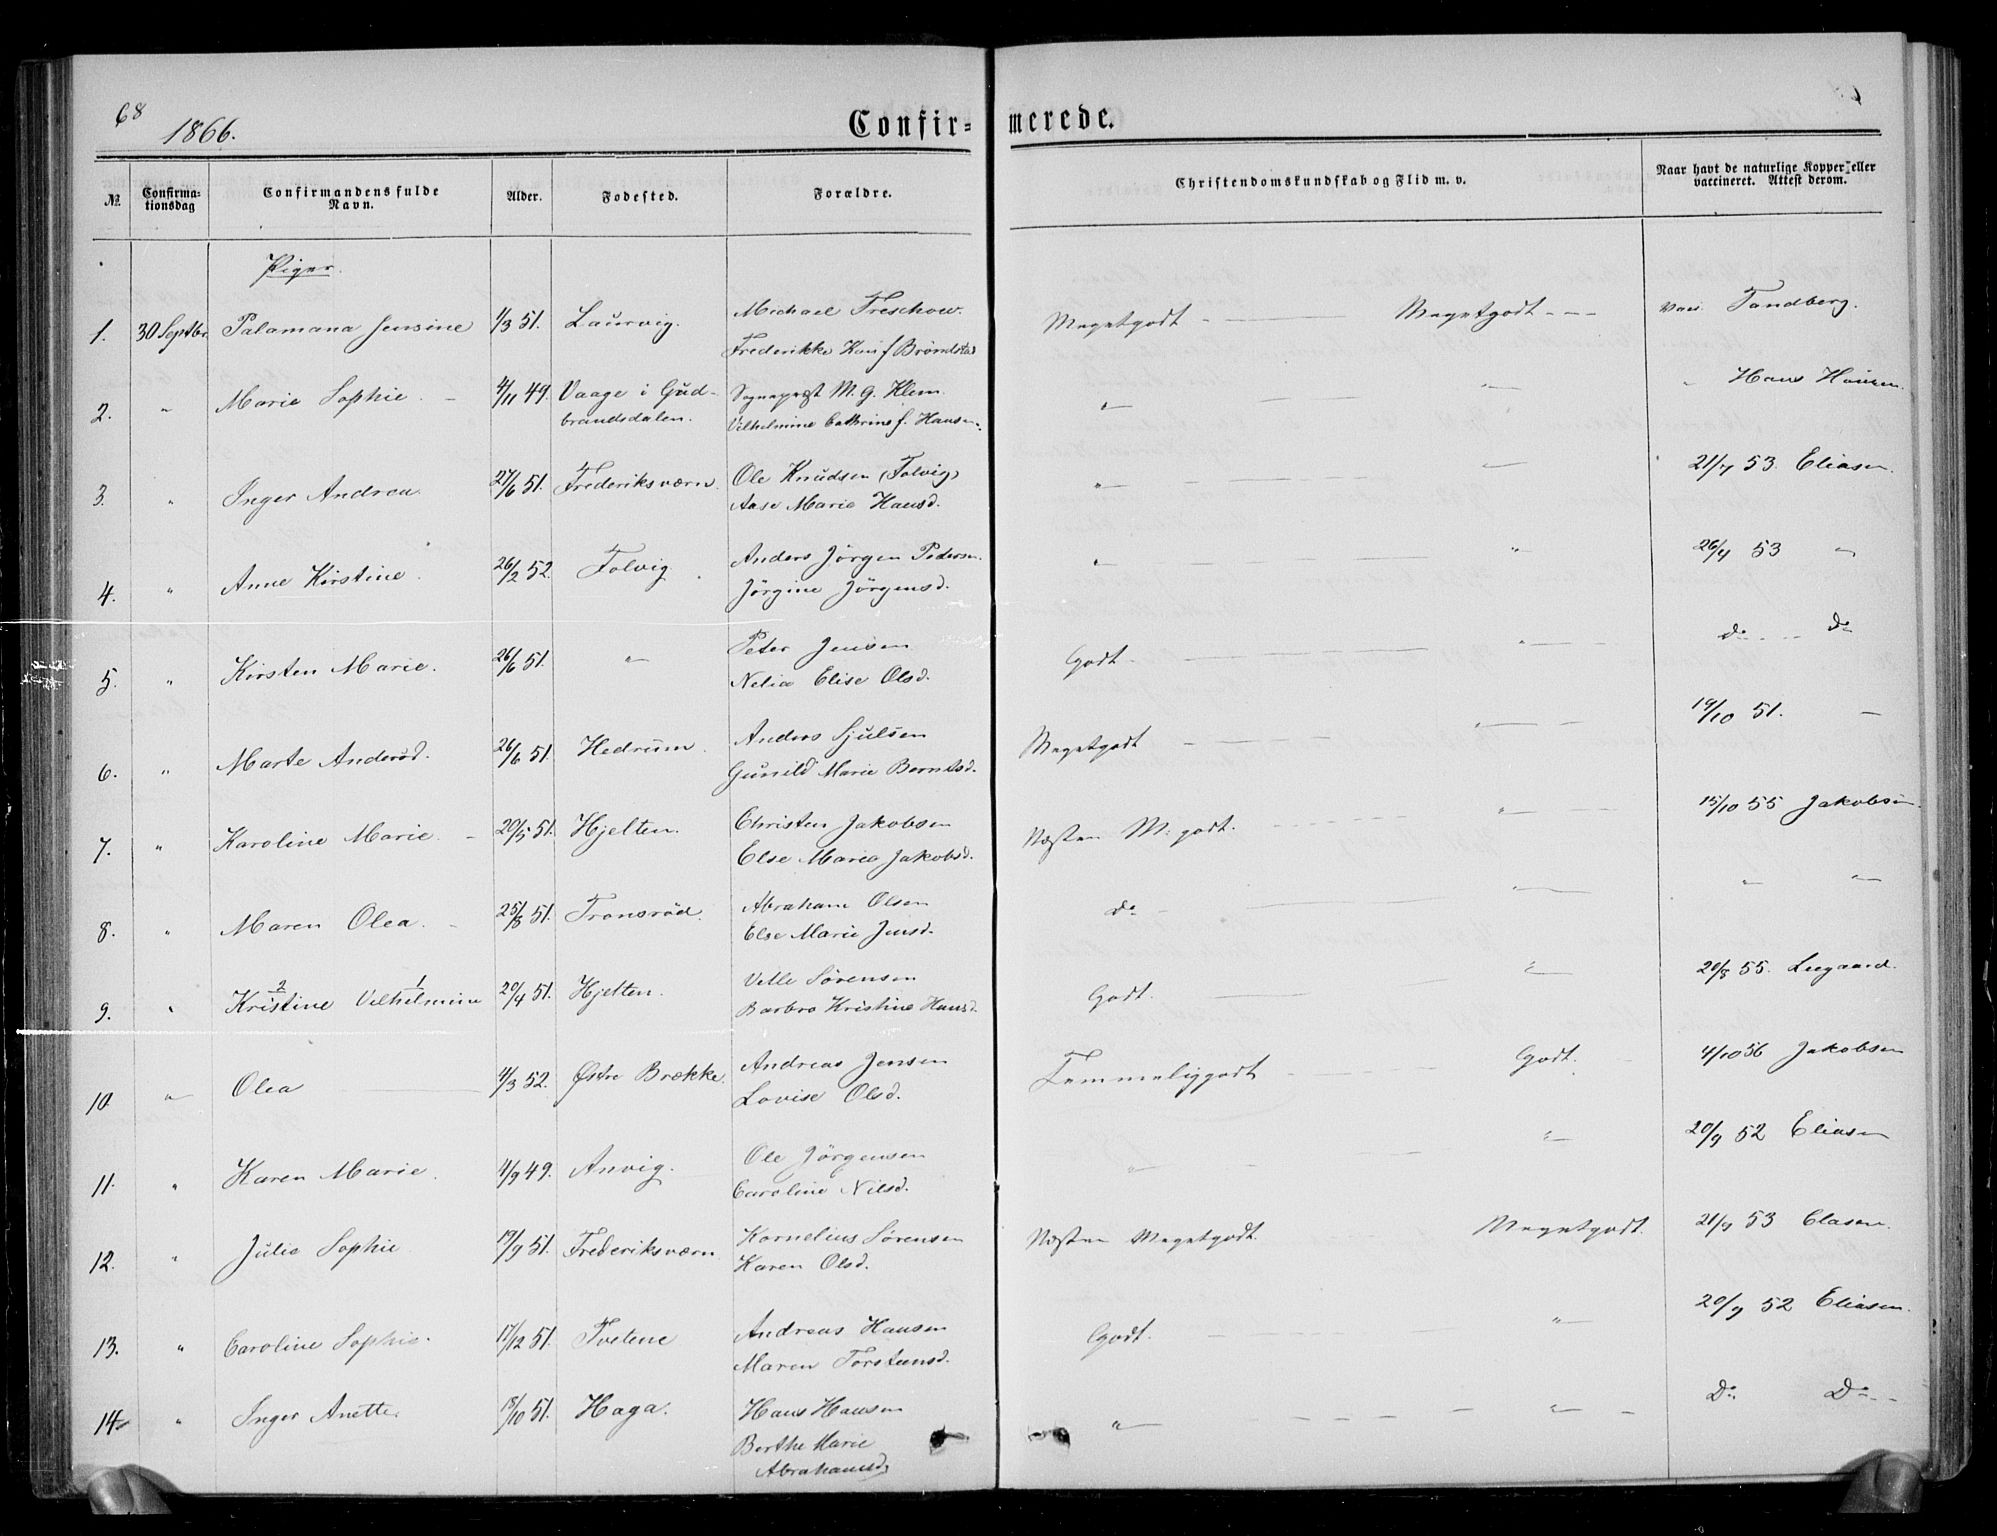 68
1866.
Confir- merede.
№ Confirma-tionsdag Confirmandens fulde Navn. Alder. Fødested. Forældre. Christendomskundskab og Flid m. v. Naar havt de naturlige Kopper eller vaccineret. Attest derom.
Piger.
1. 30 Septbr. Palamana Jensine 1/3 51. Laurvig. Michael Treschow. Megetgodt Megetgodt Vac. Tandberg.
Frederikke Kon f Brømstad
2. " Marie Sophie. 4/11 49. Vaage i Gud- Sognepræst M. G. Klem. " " " Hans Hansen.
brandsdalen. Vilhelmine Cathrine f. Hansen.
3. " Inger Andrea. 27/6 51. Frederiksværn. Ole Knudsen (Folvig) " " 21/7 53. Eliasen
Aase Marie Hansd.
4. " Anne Kirstine. 26/2 52. Folvig. Anders Jörgen Pedersen. " " 26/4 53 "
Jörgine Jörgensd.
5. " Kirsten Marie. 26/6 51. " Peter Jensen Godt. " Do Do
Nelia Elise Olsd.
6. " Marte Anderød. 26/6 51. Hedrum. Anders Sjulsen Megetgodt " 19/10 51. —
Gunild Marie Berntsd.
7. " Karoline Marie. 20/5 51. Hjelten. Christen Jakobsen Næsten M. godt. " 15/10 55 Jakobsen
Else Marie Jakobsd.
8. " Maren Olea. 25/8 51. Tronsröd. Abraham Olsen Do " " "
Else Marie Jensd.
2 1
9. " Kristine Vilhelmine 20/4 51. Hjelten. Vetle Sörensen Godt. " 20/8 55. Legaard.
Barbro Kristine Hansd.
10. " Olea 4/3 52. Østre Brække. Andreas Jensen Temmeliggodt Godt. 4/10 56 Jakobsen
Lovise Olsd.
11. " Karen Marie. 4/9 49. Anvig. Ole Jörgensen " " 20/9 52 Eliasen
Caroline Nilsd.
12. " Julie Sophie 19/9 51. Frederiksværn Kornelius Sörensen Næsten Megetgodt. Megetgodt. 21/9 53 Clasen.
Karen Olsd.
13. " Caroline Sophie. 17/12 51. Tvetene Andreas Hansen Godt. " 20/9 52 Eliasen.
Maren Torstensd.
14. " Inger Anette. 18/10 51. Haga. Hans Hansen " " Do Do
Berthe Marie
Abrahamsd.